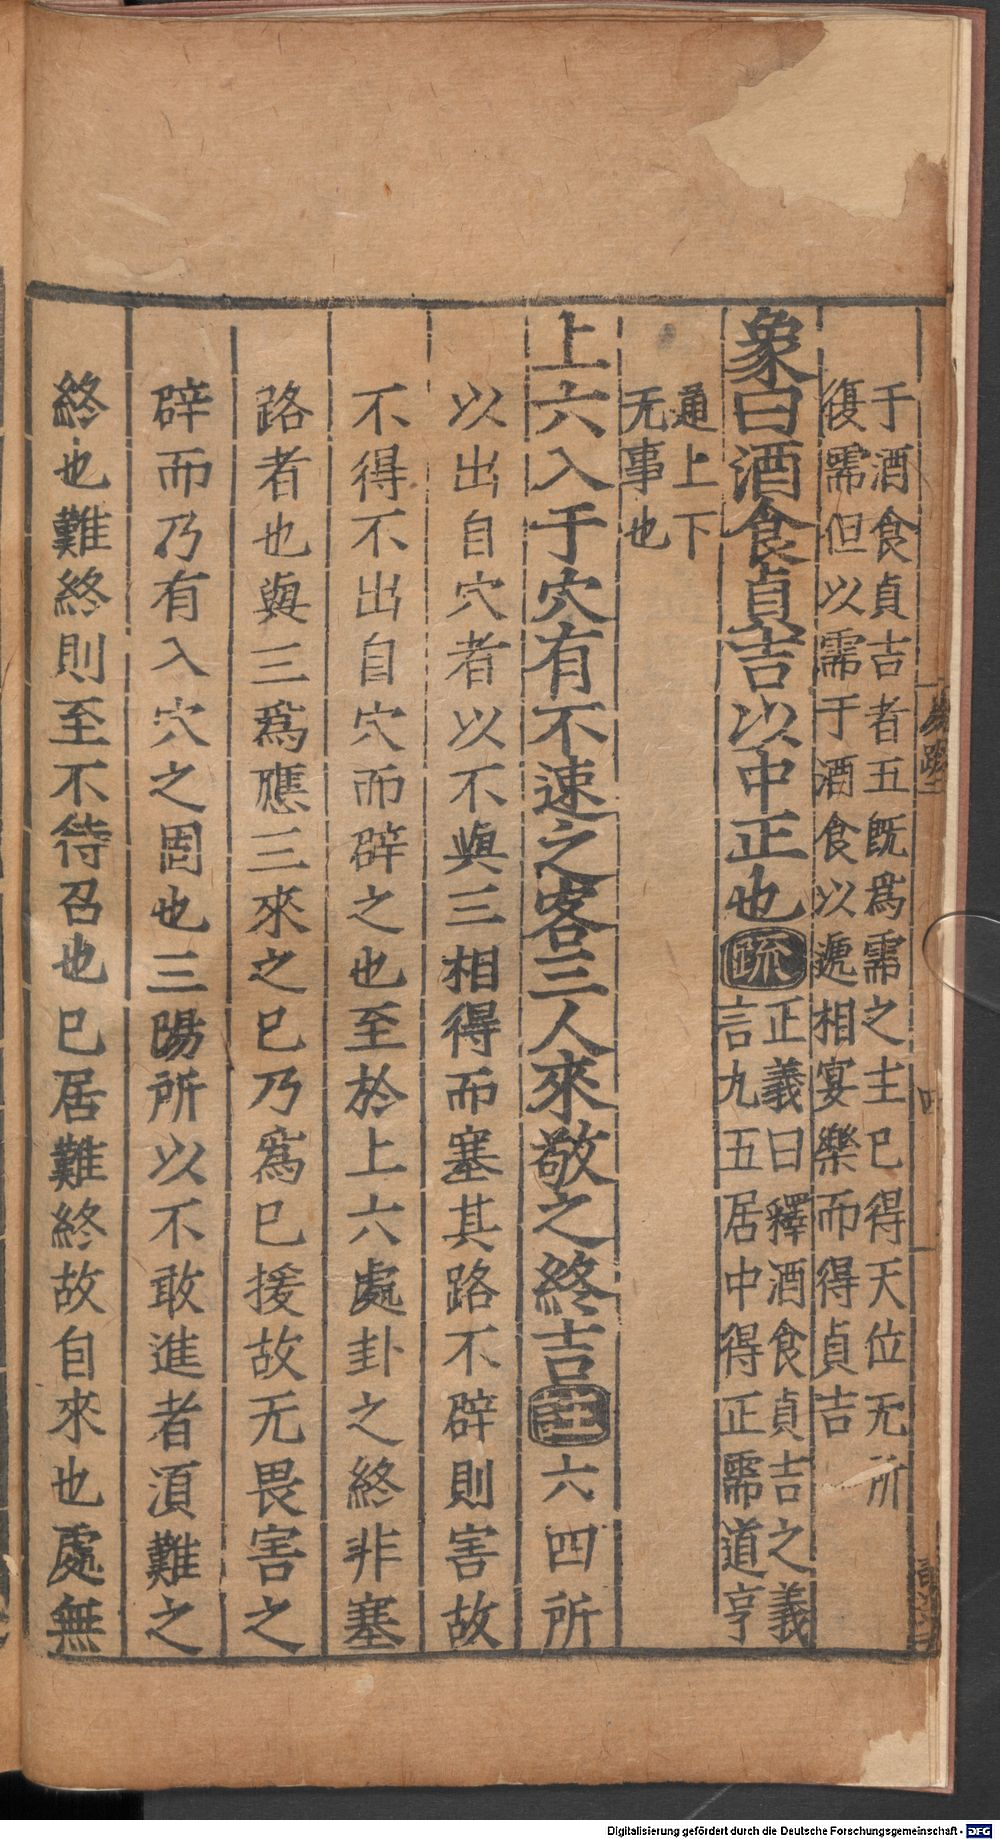 于酒食貞吉者五旣爲需之主已得天位无所
復需但以需于酒食以遞相宴樂而得貞吉
象曰酒食貞吉以中正也疏正義曰釋酒食貞吉之義
言九五居中得正需道亨
通上下
无事也
上六入于穴有不速之客三人來敬之終吉註六四所
以出自穴者以不與三相得而塞其路不辟則害故
不得不出自穴而辟之也至於上六處卦之終非塞
路者也與三爲應三來之已乃爲已援故无畏害之
辟而乃有入穴之固也三陽所以不敢進者湏難之
終也難終則至不待召也已居難終故自來也處無
Digitalisierung gefördert durch die Deutsche Forschungsgemeinschaft - DFG